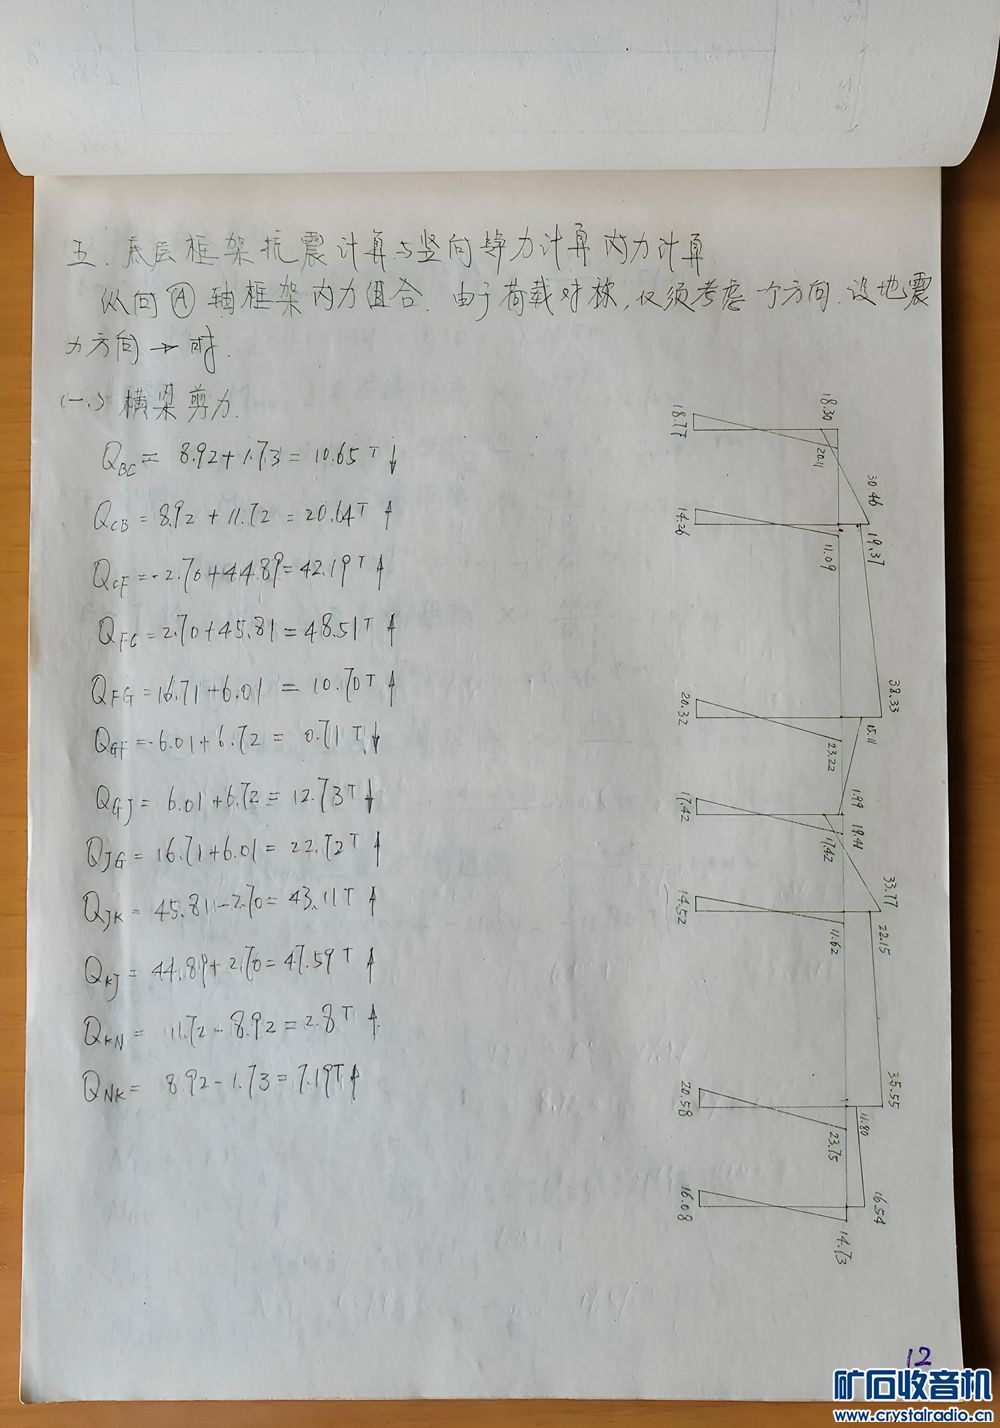 五. 底层框架抗震计算与竖向静力计算内力计算
纵向Ⓐ轴框架内力组合. 由于荷载对称,仅须考虑一个方向.设地震
力方向→时.
(一.) 横梁剪力.
QBC= 8.92+1.73=10.65T↓
QCB=8.92+11.72=20.64T↑
QCF=-2.70+44.89=42.19T↑
QFC=2.70+45.81=48.51T↑
QFG=16.71+6.01=10.70T↑
QGF=-6.01+6.72= 0.71T↓
QGJ= 6.01+6.72=12.73T↓
QJG= 16.71+6.01=22.72T↑
QJK= 45.81-2.70=43.11T↑
QKJ= 44.89+2.70=47.59T↑
QKN= 11.72-8.92=2.8T↑
QNK= 8.92-1.73=7.19T↑
18.77
18.30
20.11
30.46
14.26
11.09
19.37
20.32
23.22
38.33
15.11
17.42
1.99
19.41
17.42
33.77
14.52
11.62
22.15
20.58
23.75
35.55
11.80
16.08
16.54
14.73
12
矿石收音机
www.crystalradio.cn